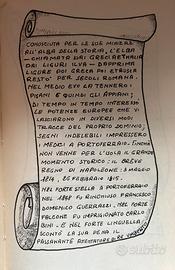 CONOSCIUTA PER LE SUE MINIERE
ALL'ALBA DELLA STORIA, L'ELBA
- CHIAMATA DAI GRECI AETHALIA
DAI LIGURI ILVA - DAPPRIMA
LIGURE POI GRECA POI ETRUSCA
RESTO' PER SECOLI ROMANA.
NEL MEDIO EVO LA TENNERO I
PISANI E QUINDI GLI APPIANI;
DI TEMPO IN TEMPO INTERESSO'
LE POTENZE EUROPEE CHE VI
LASCIARONO IN DIVERSI MODI
TRACCE DEL PROPRIO DOMINIO,
SEGNI INDELEBILI IMPRESSERO
I MEDICI A PORTOFERRAIO. FINCHÈ
NON VENNE PER L'ISOLA IL GRANDE
MOMENTO STORICO: IL BREVE
REGNO DI NAPOLEONE: 3 MAGGIO
1814, 26 FEBBRAIO 1815.
NEL FORTE STELLA A PORTOFERRAIO
NEL 1848 FU RINCHIUSO FRANCESCO
DOMENICO GUERRAZZI, NEL FORTE
FALCONE FU IMPRIGIONATO CARLO
BINI. E NEL FORTE LINGUELLA,
SCONTÒ LA SUA PENA IL
PASSANANTE ATTENTATORE DI RE UMBERTO
subito